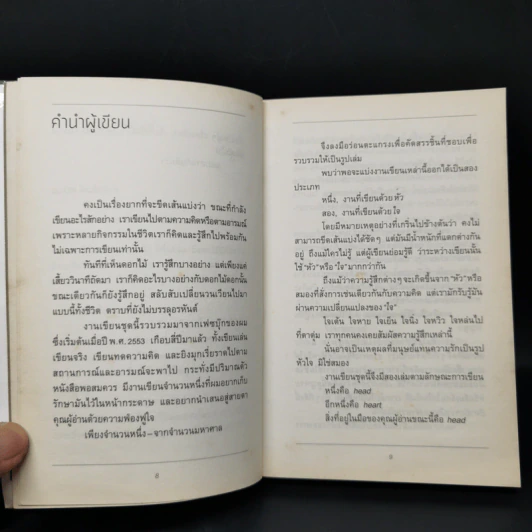 คำนำผู้เขียน
คงเป็นเรื่องยากที่จะขีดเส้นแบ่งว่า ขณะที่กำลัง
เขียนอะไรสักอย่าง เราเขียนไปตามความคิดหรือตามอารมณ์
เพราะหลายกิจกรรมในชีวิตเราก็คิดและรู้สึกไปพร้อมกัน
ไม่เฉพาะการเขียนเท่านั้น
ทันทีที่เห็นดอกไม้ เรารู้สึกบางอย่าง แต่เพียงแค่
เสี้ยววินาทีถัดมา เราก็คิดอะไรบางอย่างเกี่ยวกับดอกไม้ดอกนั้น
ขณะเดียวกันก็ยังรู้สึกอยู่ สลับสับเปลี่ยนวนเวียนไปมา
แบบนี้ทั้งชีวิต ตราบที่ยังไม่บรรลุอรหันต์
งานเขียนชุดนี้รวบรวมมาจากเฟซบุ๊กของผม
ซึ่งเริ่มต้นเมื่อปี พ.ศ. 2553 เกือบสี่ปีมาแล้ว ทั้งเขียนเล่น
เขียนจริง เขียนทดความคิด และยังมุกเรี่ยราดไปตาม
สถานการณ์และอารมณ์จะพาไป กระทั่งมีปริมาณตัว
หนังสือพอสมควร มีงานเขียนจำนวนหนึ่งที่ผมอยากเก็บ
รักษามันไว้ในหน้ากระดาษ และอยากนำเสนอสู่สายตา
คุณผู้อ่านด้วยความพ้องฟูใจ
เพียงจำนวนหนึ่ง–จากจำนวนมหาศาล
จึงลงมือร่อนตะแกรงเพื่อคัดสรรชิ้นที่ชอบเพื่อ
รวบรวมให้เป็นรูปเล่ม
พบว่าพอจะแบ่งงานเขียนเหล่านี้ออกได้เป็นสอง
ประเภท
หนึ่ง, งานที่เขียนด้วยหัว
สอง, งานที่เขียนด้วยใจ
โดยมีหมายเหตุอย่างที่เกริ่นไปข้างต้นว่า คงไม่
สามารถขีดเส้นแบ่งได้ชัดๆ แต่มันมีน้ำหนักที่แตกต่างกัน
อยู่ ถึงแม้ใครไม่รู้ แต่ผู้เขียนย่อมรู้ดี ว่าระหว่างเขียนนั้น
ใช้ "หัว" หรือ "ใจ" มากกว่ากัน
ถึงแม้ว่าความรู้สึกต่างๆ จะเกิดขึ้นจาก "หัว" หรือ
สมองที่สั่งการเช่นเดียวกับความคิด แต่เรามักรับรู้มัน
ผ่านความเปลี่ยนแปลงของ "ใจ"
ใจเต้น ใจหาย ใจเย็น ใจนิ่ง ใจหวิว ใจหล่นไป
ที่ตาตุ่ม เราทุกคนคงเคยสัมผัสความรู้สึกเหล่านี้
นั่นอาจเป็นเหตุผลที่มนุษย์แทนความรักเป็นรูป
หัวใจ มิใช่สมอง
งานเขียนชุดนี้จึงมีสองเล่มตามลักษณะการเขียน
หนึ่งคือ head
อีกหนึ่งคือ heart
สิ่งที่อยู่ในมือของคุณผู้อ่านขณะนี้คือ head